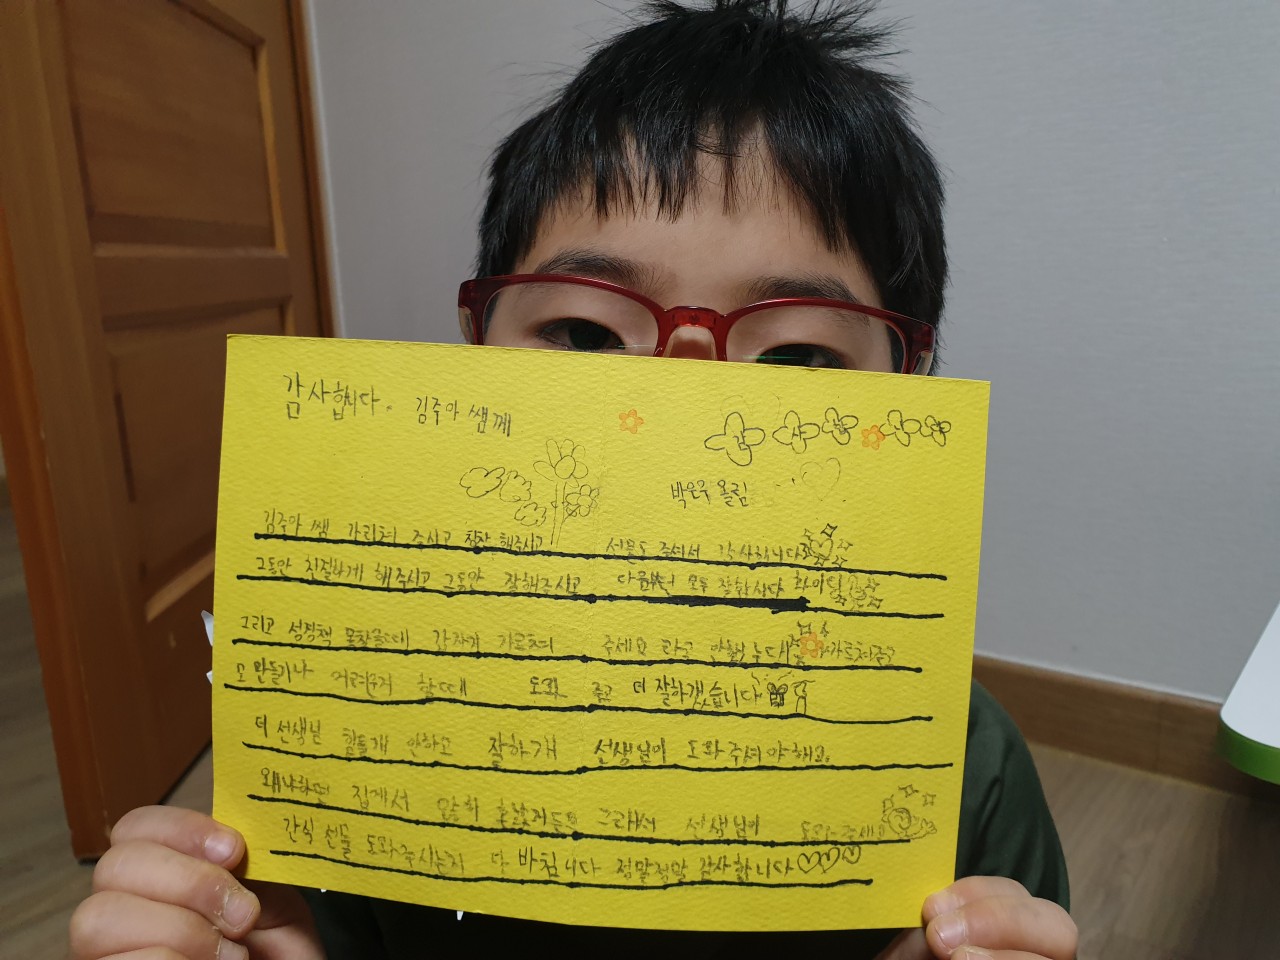 감사합니다. 김주아 쌤께
감 사 합 니 다
박은우 올림
김주아 쌤 가리쳐 주시고 칭찬 해주시고 선물도 주셔서 감사합니다
그동안 친절하게 해주시고 그동안 잘해주시고 다 모두 잘합시다 화이팅
그리고 성경책 못찾을때 갑자기 가르쳐 주세요 라고 안했는데 가르쳐주고
또 만들기나 어려운거 할때 도와 주고 더 잘하겠습니다
더 선생님 힘들게 안하고 잘하게 선생님이 도와주셔야 해요.
왜냐하면 집에서 그래서 선생님이 도와주세요
간식 선물 도와주시는지 다 바침니다 정말정말 감사합니다